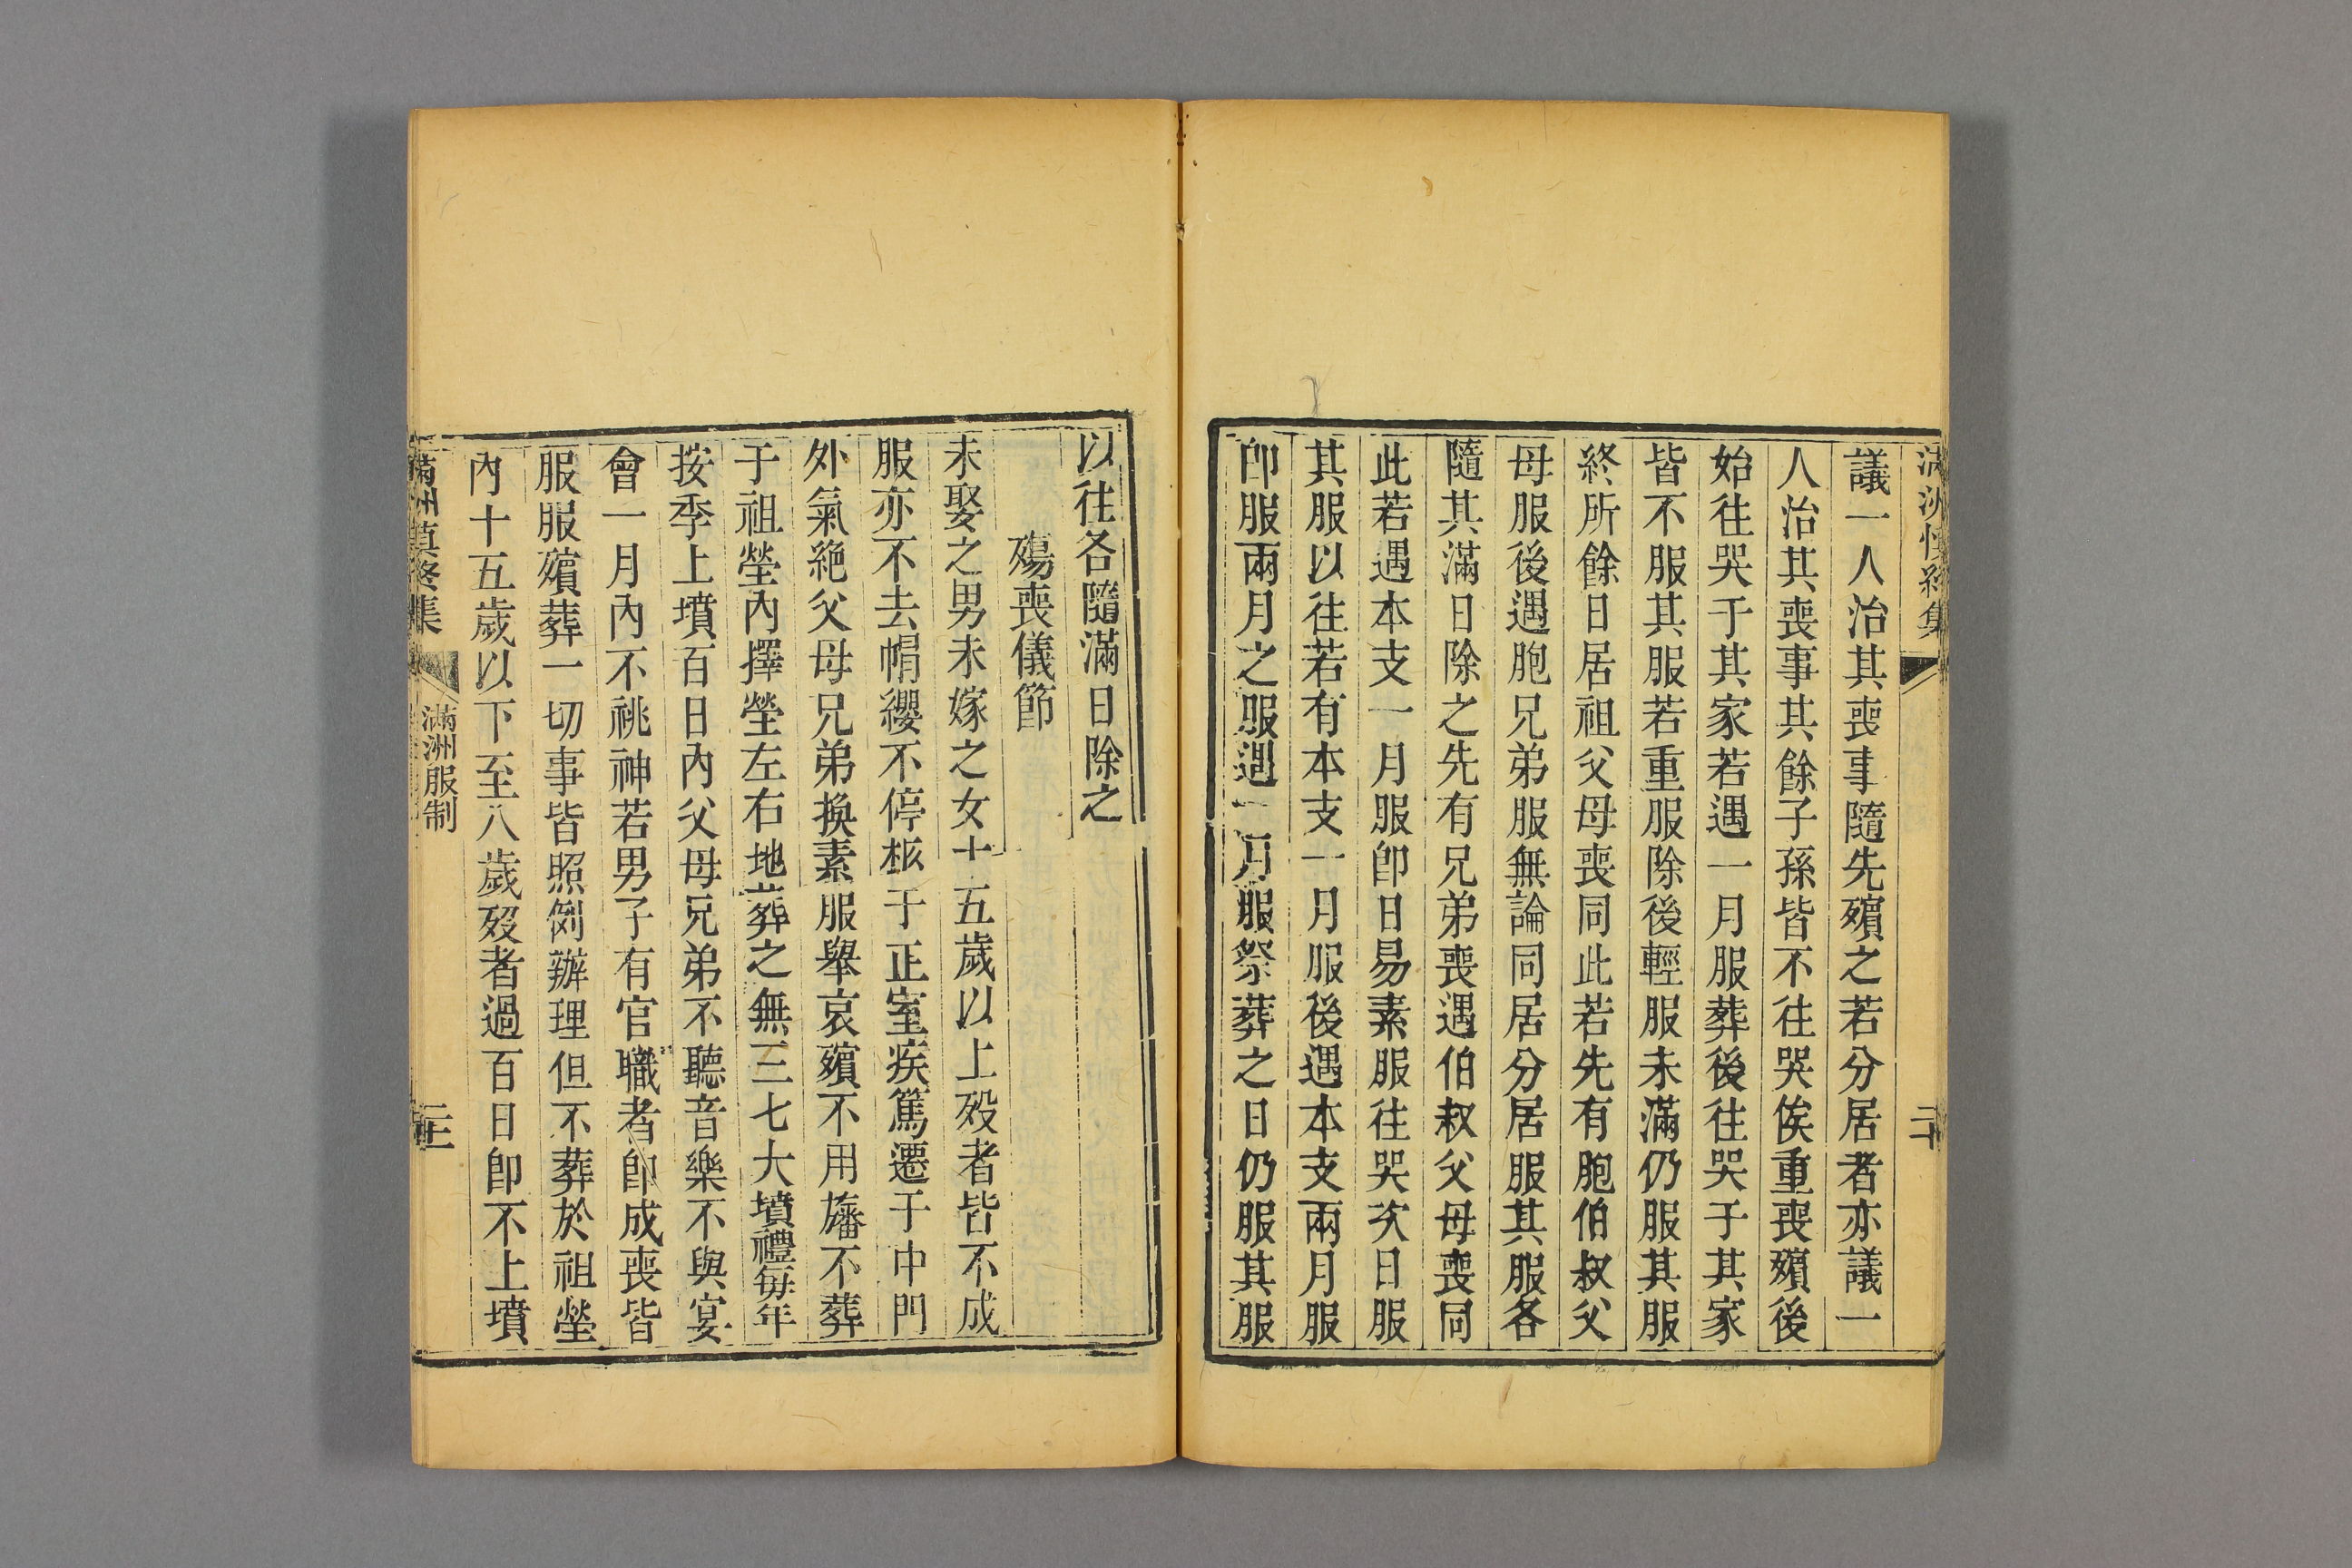 滿洲慎終集
二十
議一人治其喪事隨先殯之若分居者亦議一
人治其喪事其餘子孫皆不往哭俟重喪殯後
始往哭于其家若遇一月服葬後往哭于其家
皆不服其服若重服除後輕服未滿仍服其服
終所餘日居祖父母喪同此若先有胞伯叔父
母服後遇胞兄弟服無論同居分居服其服各
隨其滿日除之先有兄弟喪遇伯叔父母喪同
此若遇本支一月服卽日易素服往哭次日服
其服以往若有本支一月服後遇本支兩月服
卽服兩月之服遇一月服祭葬之日仍服其服
以往各隨滿日除之
殤喪儀節
未娶之男未嫁之女十五歲以上歿者皆不成
服亦不去帽纓不停柩于正室疾篤遷于中門
外氣絕父母兄弟換素服舉哀殯不用旛不葬
于祖塋內擇塋左右地葬之無三七大墳禮每年
按季上墳百日內父母兄弟不聽音樂不與宴
會一月內不祧神若男子有官職者卽成喪皆
服服殯葬一切事皆照例辦理但不葬於祖塋
內十五歲以下至八歲歿者過百日卽不上墳
滿洲慎終集
滿洲服制